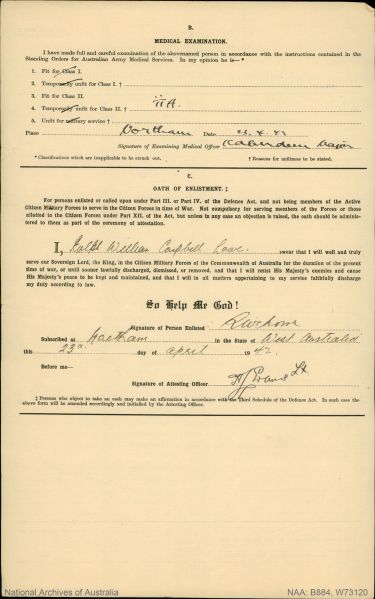 B.
MEDICAL EXAMINATION.
I have made full and careful examination of the abovenamed person in accordance with the instructions contained in the
Standing Orders for Australian Army Medical Services. In my opinion he is—*
1. Fit for Class I.
2. Temporarily unfit for Class I. †
3. Fit for Class II.
4. Temporarily unfit for Class II. † II A.
5. Unfit for military service †
Place Northam Date 23.4.42
Signature of Examining Medical Officer Major
* Classifications which are inapplicable to be struck out. † Reasons for unfitness to be stated.
C.
OATH OF ENLISTMENT. ‡
For persons enlisted or called upon under Part III. or Part IV. of the Defence Act, and not being members of the Active
Citizen Military Forces to serve in the Citizen Forces in time of War. Not compulsory for serving members of the Forces or those
allotted to the Citizen Forces under Part XII. of the Act, but unless in any case an objection is raised, the oath should be adminis-
tered to them as part of the ceremony of attestation.
I, Ralph William Campbell swear that I will well and truly
serve our Sovereign Lord, the King, in the Citizen Military Forces of the Commonwealth of Australia for the duration of the present
time of war, or until sooner lawfully discharged, dismissed, or removed, and that I will resist His Majesty's enemies and cause
His Majesty's peace to be kept and maintained, and that I will in all matters appertaining to my service faithfully discharge
my duty according to law.
So Help Me God!
Signature of Person Enlisted
Subscribed at Northam in the State of West Australia
this 23rd day of April 1942
Before me—
Signature of Attesting Officer Lt
‡ Persons who object to take an oath may make an affirmation in accordance with the Third Schedule of the Defence Act. In such case the
above form will be amended accordingly and initialled by the Attesting Officer.
National Archives of Australia
NAA: B884, W73120